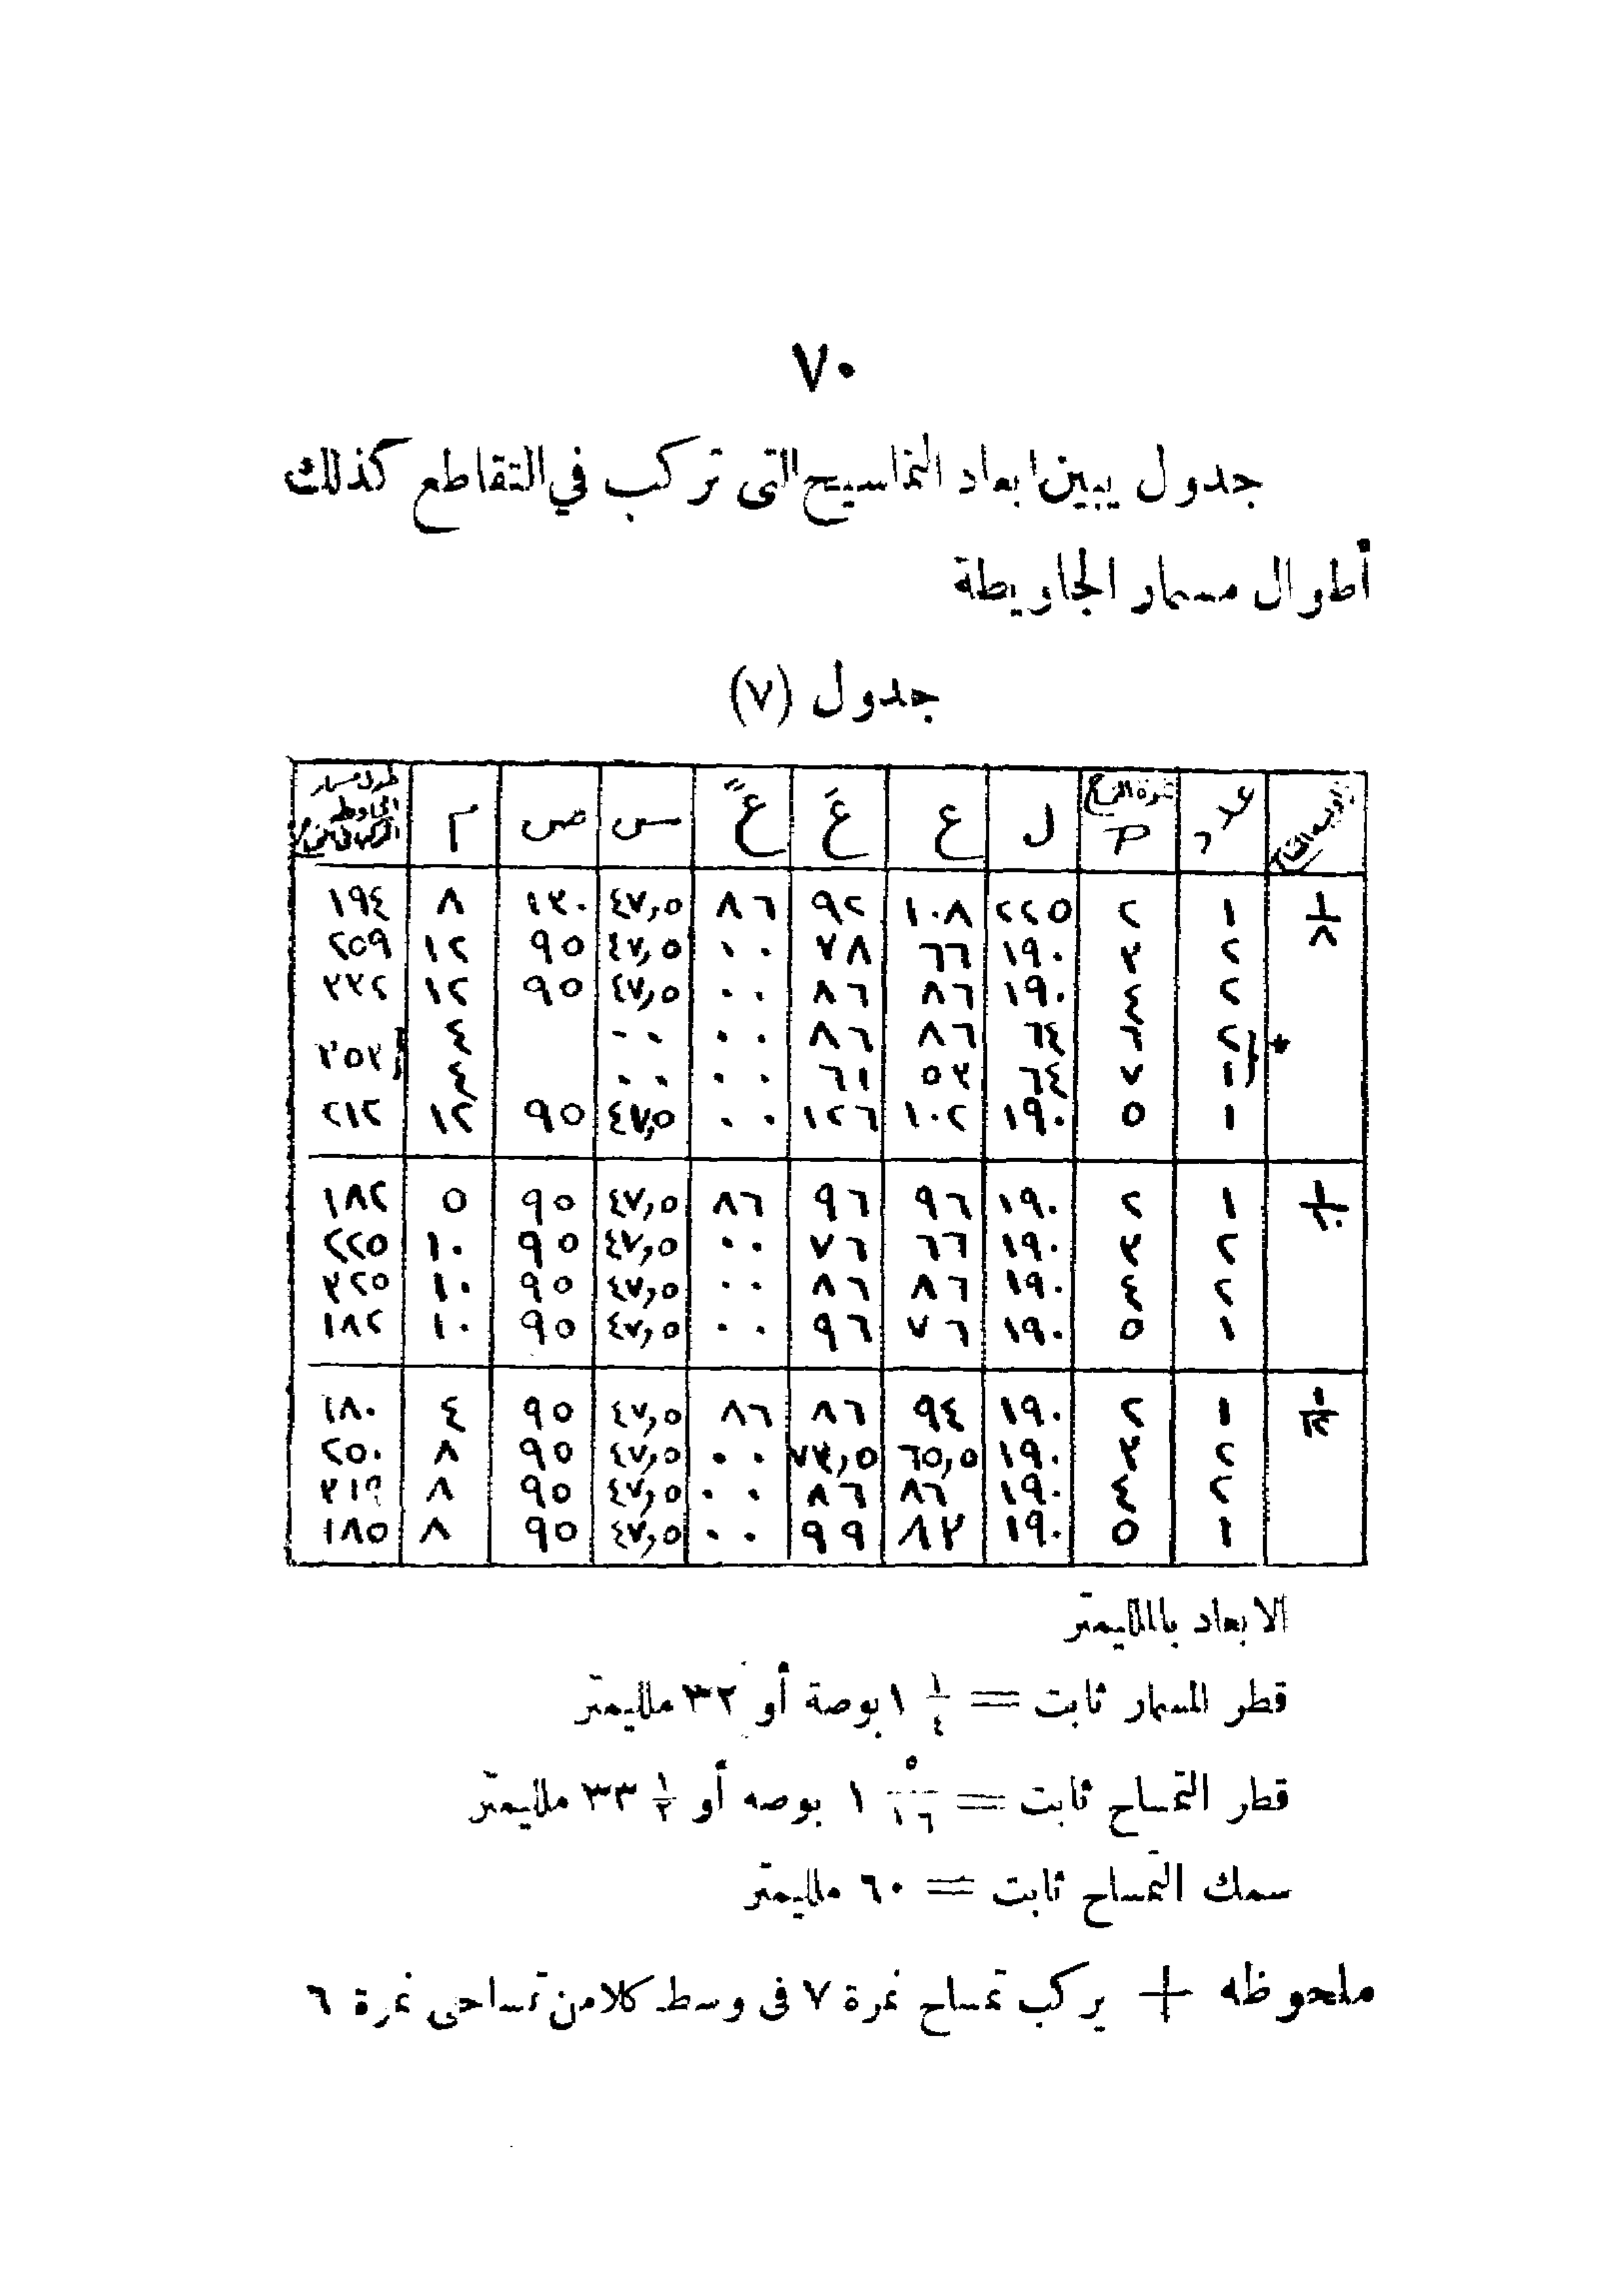 ٧٠
جدول يبين ابعاد التماسيح التى تركب في التقاطع كذلك
أطوال مسمار الجاويطة
جدول (٧)
عدد نمرة ل ع عَ عً س ص م طول مسمار
١/٨ ١ ٢ ٢٢٥ ١٠٨ ٩٢ ٨٦ ٤٧,٥ ١٣٠ ٨ ١٩٤
٢ ٣ ١٩٠ ٦٦ ٧٨ ٠٠ ٤٧,٥ ٩٥ ١٢ ٢٥٩
٢ ٤ ١٩٠ ٨٦ ٨٦ ٠٠ ٤٧,٥ ٩٥ ١٢ ٣٣٢
* ٢ ٦ ٦٤ ٨٦ ٨٦ ٠٠ ٠٠ ٤
١ ٧ ٦٤ ٥٣ ٦١ ٠٠ ٠٠ ٤ ٣٥٣
١ ٥ ١٩٠ ١٠٢ ١٢٦ ٠٠ ٤٧,٥ ٩٥ ١٢ ٢١٢
١/١٠ ١ ٢ ١٩٠ ٩٦ ٩٦ ٨٦ ٤٧,٥ ٩٥ ٥ ١٨٢
٢ ٣ ١٩٠ ٦٦ ٧٦ ٠٠ ٤٧,٥ ٩٥ ١٠ ٢٢٥
٢ ٤ ١٩٠ ٨٦ ٨٦ ٠٠ ٤٧,٥ ٩٥ ١٠ ٣٢٥
١ ٥ ١٩٠ ٧٦ ٩٦ ٠٠ ٤٧,٥ ٩٥ ١٠ ١٨٢
١/١٢ ١ ٢ ١٩٠ ٩٤ ٨٦ ٨٦ ٤٧,٥ ٩٥ ٤ ١٨٠
٢ ٣ ١٩٠ ٦٥,٥ ٧٣,٥ ٠٠ ٤٧,٥ ٩٥ ٨ ٢٥٠
٢ ٤ ١٩٠ ٨٦ ٨٦ ٠٠ ٤٧,٥ ٩٥ ٨ ٣١٩
١ ٥ ١٩٠ ٨٣ ٩٩ ٠٠ ٤٧,٥ ٩٥ ٨ ١٨٥
الابعاد بالملليمتر
قطر المسمار ثابت = ١ ١/٤ بوصة أو ٣٢ ملليمتر
قطر التمساح ثابت = ١ ٥/١٦ بوصه أو ٣٣ ١/٢ ملليمتر
سمك التمساح ثابت = ٦٠ ملليمتر
ملحوظه + يركب تمساح نمرة ٧ فى وسط كلا من تمساحى نمرة ٦